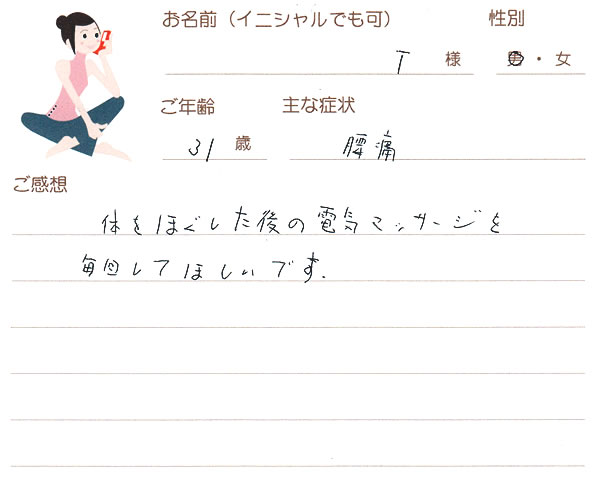 お名前（イニシャルでも可）
性別
T 様
男・女
ご年齢
主な症状
31 歳
腰痛
ご感想
体をほぐした後の電気マッサージを
毎回してほしいです.